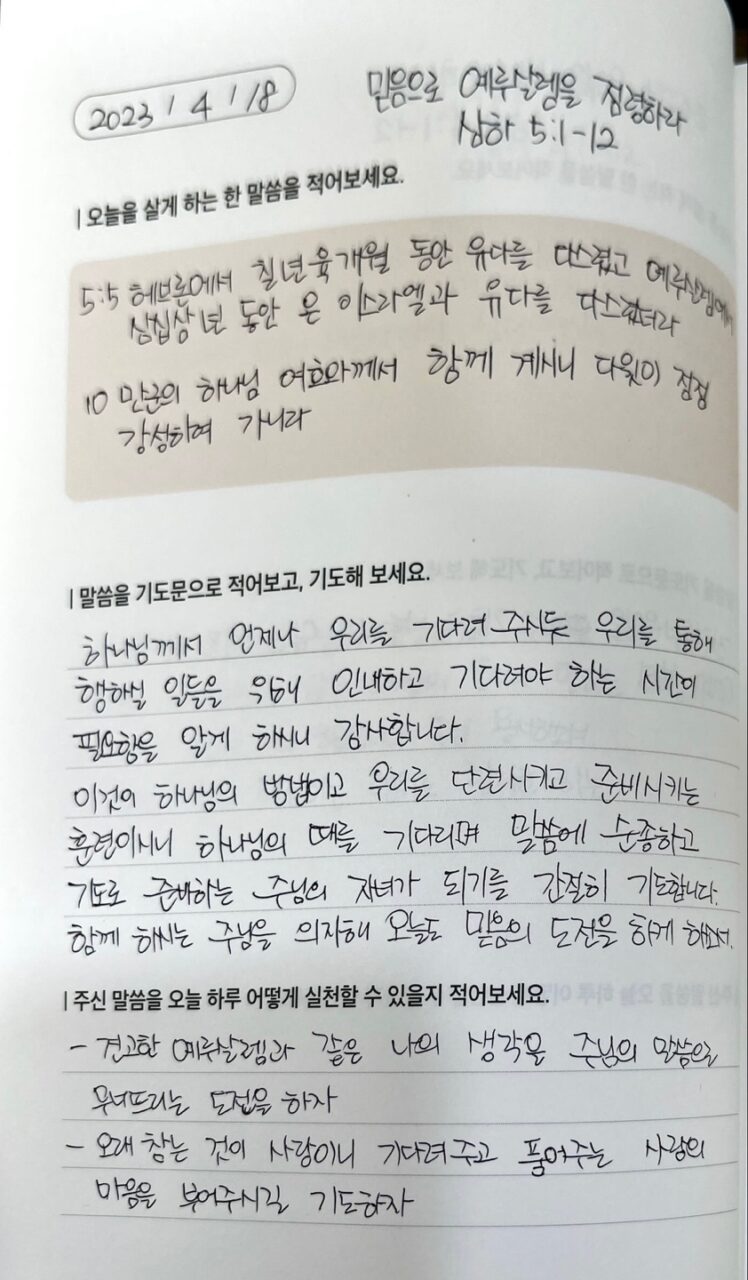 2023 / 4 / 18
믿음으로 예루살렘을 점령하라
삼하 5:1-12
| 오늘을 살게 하는 한 말씀을 적어보세요.
5:5 헤브론에서 칠 년 육 개월 동안 유다를 다스렸고 예루살렘에서
삼십삼 년 동안 온 이스라엘과 유다를 다스렸더라
10 만군의 하나님 여호와께서 함께 계시니 다윗이 점점
강성하여 가니라
| 말씀을 기도문으로 적어보고, 기도해 보세요.
하나님께서 언제나 우리를 기다려 주시듯 우리를 통해
행하실 일들을 위해 인내하고 기다려야 하는 시간이
필요함을 알게 하시니 감사합니다.
이것이 하나님의 방법이고 우리를 단련시키고 준비시키는
훈련이시니 하나님의 때를 기다리며 말씀에 순종하고
기도로 준비하는 주님의 자녀가 되기를 간절히 기도합니다.
함께 하시는 주님을 의지해 오늘도 믿음의 도전을 하게 하소서.
| 주신 말씀을 오늘 하루 어떻게 실천할 수 있을지 적어보세요.
- 견고한 예루살렘과 같은 나의 생각을 주님의 말씀으로
무너뜨리는 도전을 하자
- 오래 참는 것이 사랑이니 기다려주고 품어주는 사랑의
마음을 부어주시길 기도하자